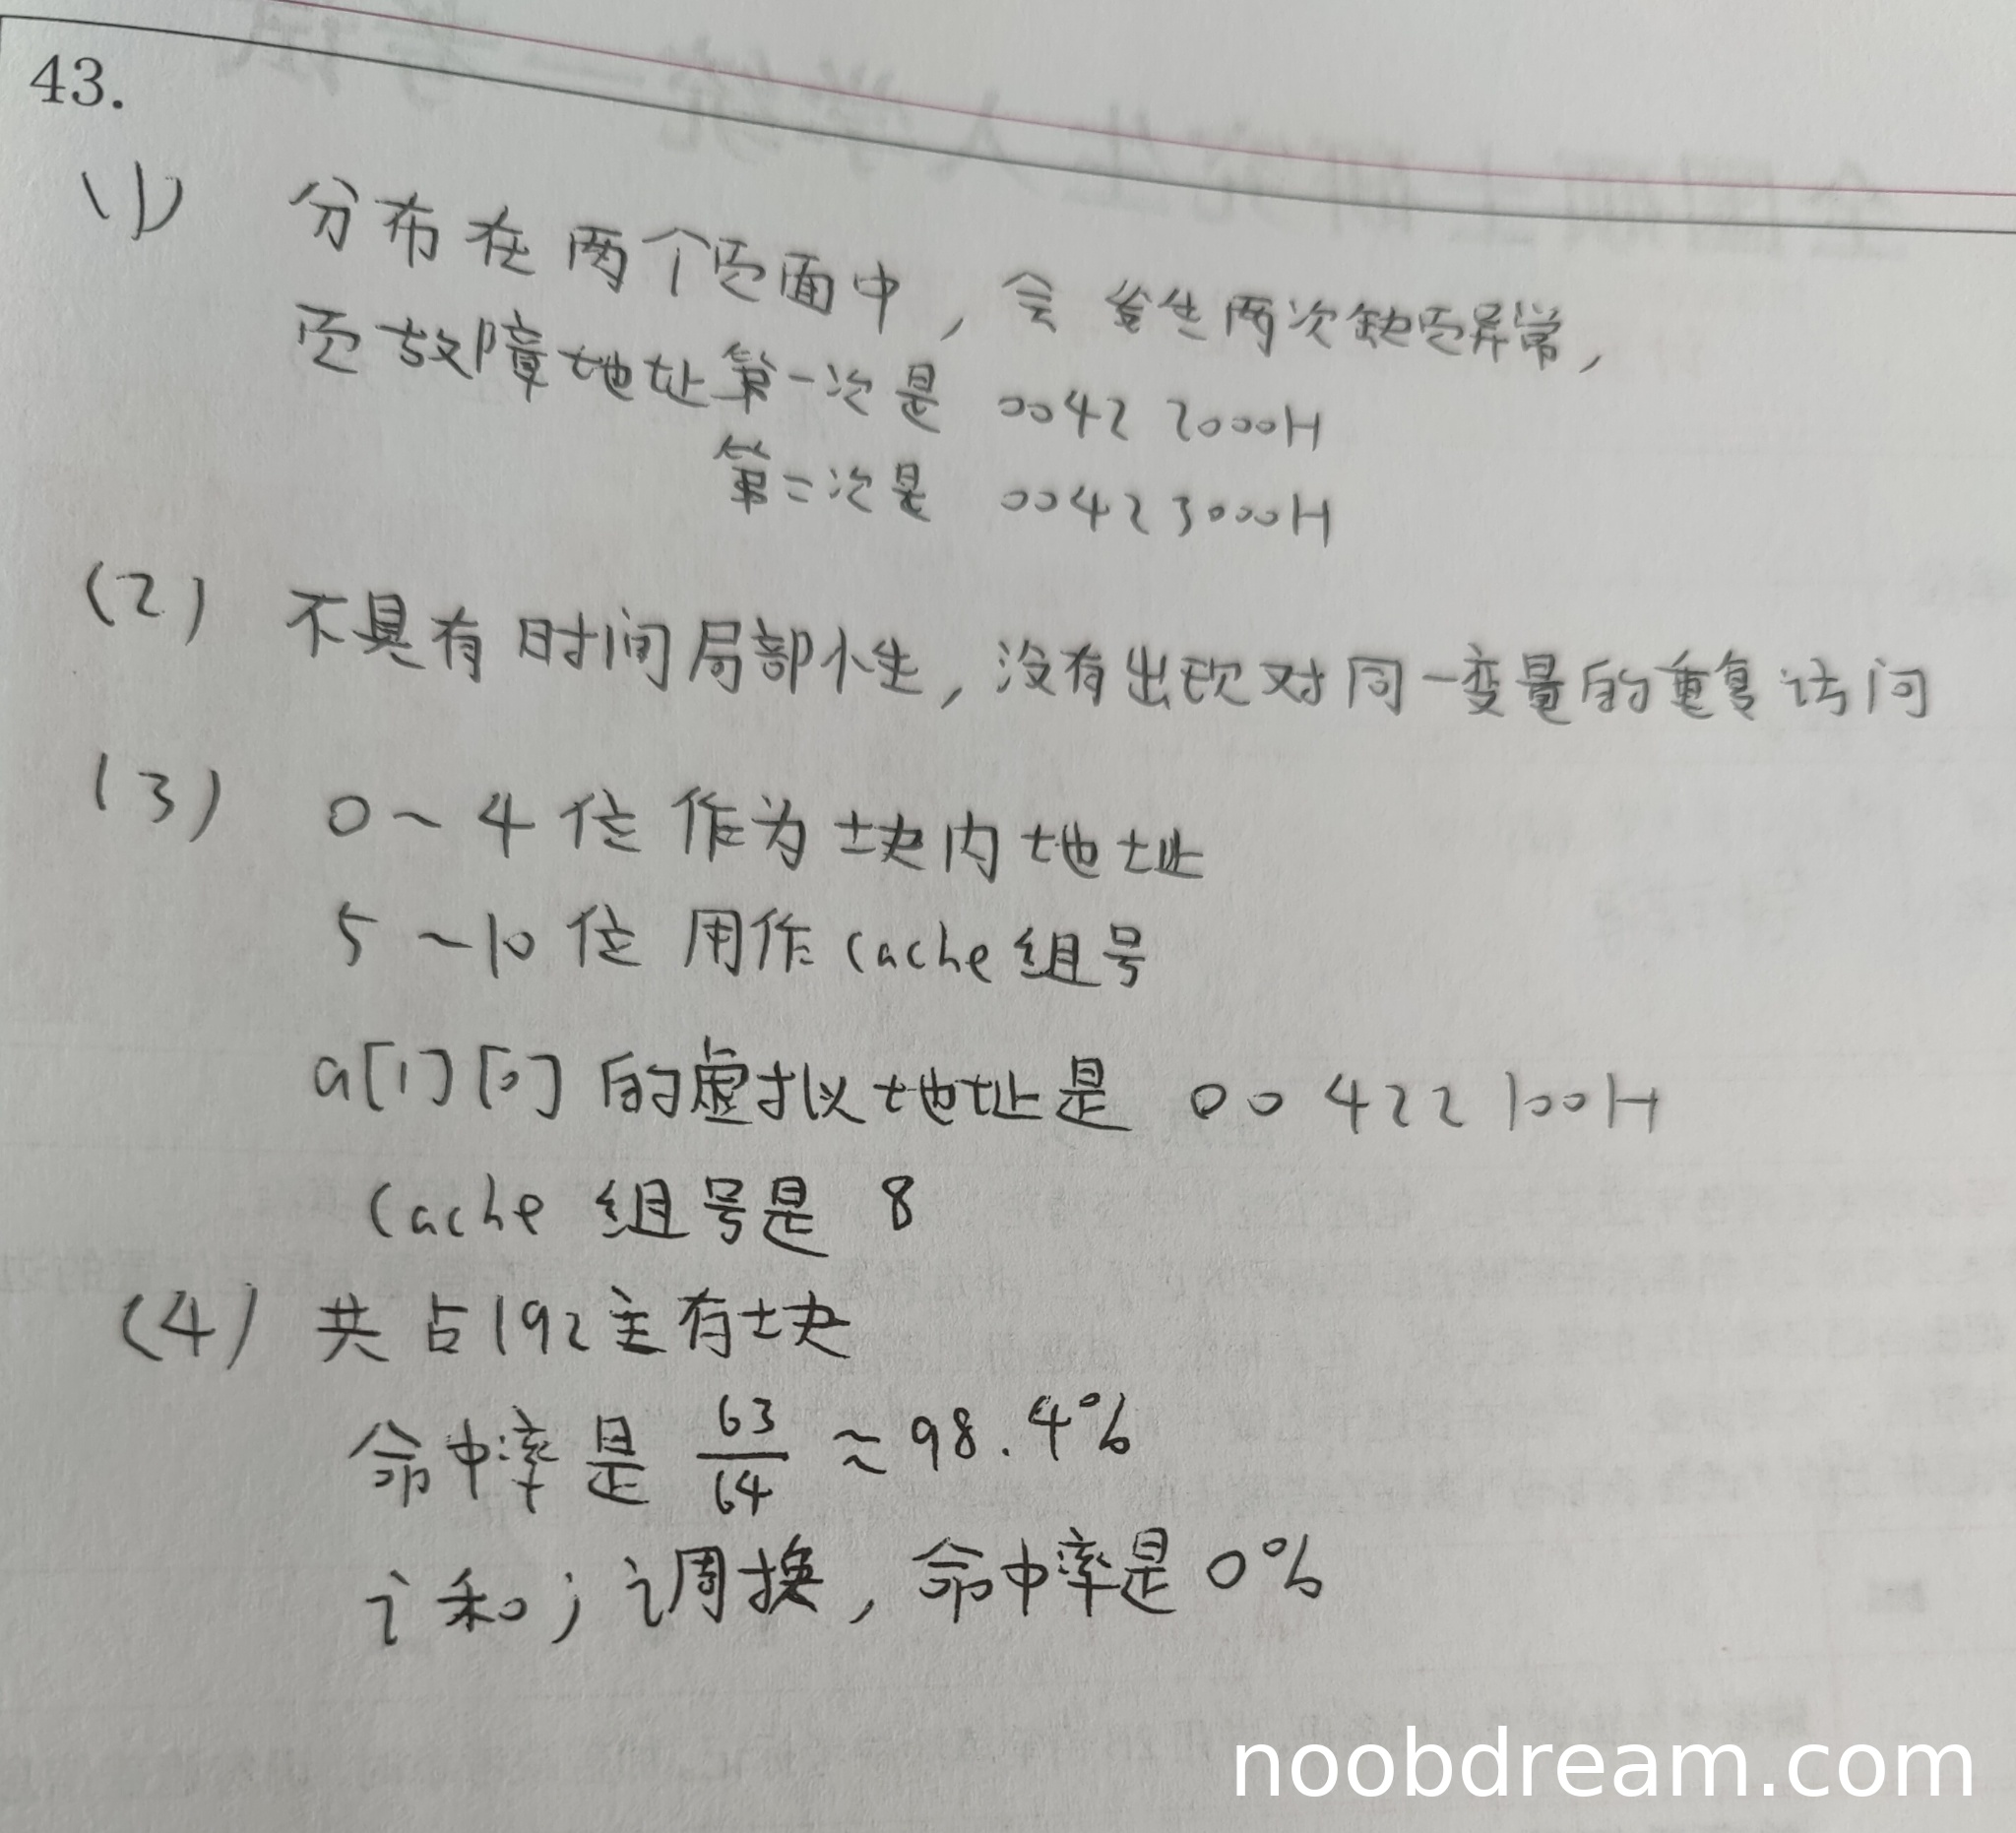 43.
(1) 分布在两个页面中，会发生两次缺页异常，
页故障地址第一次是 00422000H
第二次是 00423000H
(2) 不具有时间局部性，没有出现对同一变量的重复访问
(3) 0~4位作为块内地址
5~10位用作Cache组号
a[1][0]的虚拟地址是 00422100H
Cache 组号是 8
(4) 共占192主存块
命中率是 63/64 ≈98.4%
i和j调换，命中率是0%
noobdream.com